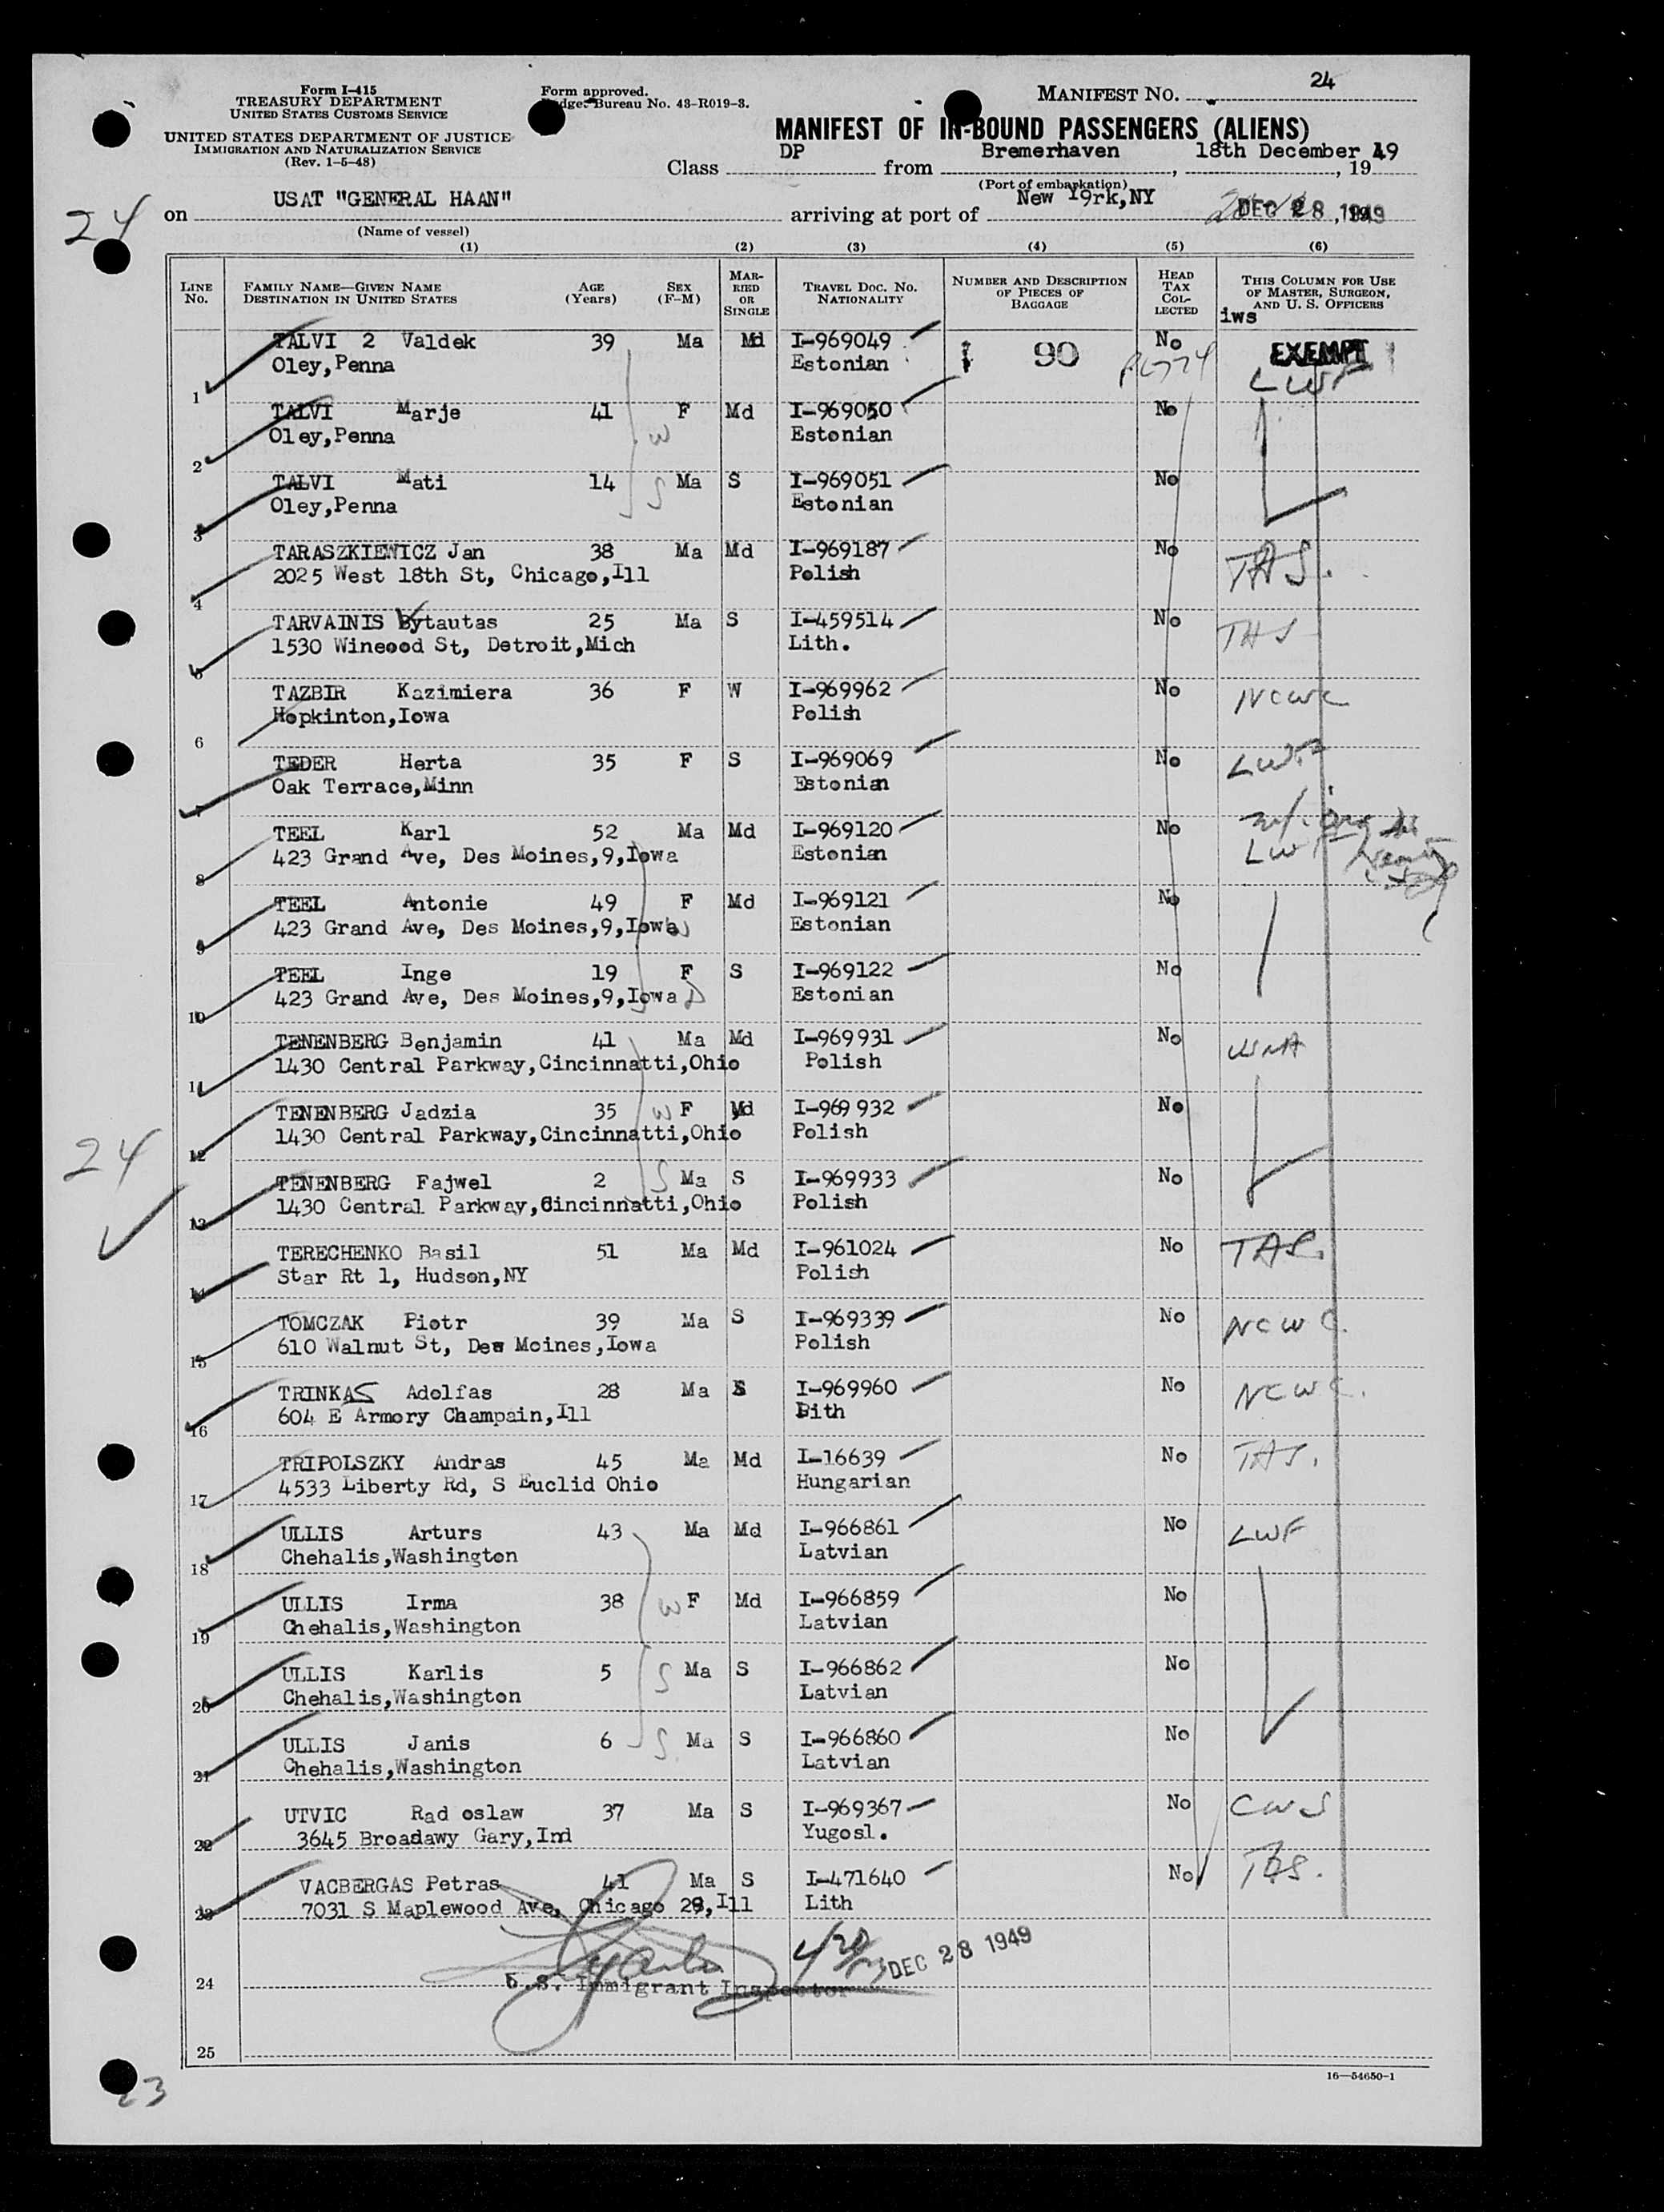 Form I-415
TREASURY DEPARTMENT
UNITED STATES CUSTOMS SERVICE
UNITED STATES DEPARTMENT OF JUSTICE
IMMIGRATION AND NATURALIZATION SERVICE
(Rev. 1-5-48)
Form approved.
Budget Bureau No. 43-R019-3.
MANIFEST NO. 24
MANIFEST OF IN-BOUND PASSENGERS (ALIENS)
Class DP from Bremerhaven, 18th December 49, 19
(Port of embarkation)
24
on USAT "GENERAL HAAN" arriving at port of New Y9rk,NY DEC 28 1949, 19
(Name of vessel)
(1) (2) (3) (4) (5) (6)
LINE No. FAMILY NAME—GIVEN NAME DESTINATION IN UNITED STATES AGE (Years) SEX (F-M) MARRIED OR SINGLE TRAVEL DOC. NO. NATIONALITY NUMBER AND DESCRIPTION OF PIECES OF BAGGAGE HEAD TAX COLLECTED THIS COLUMN FOR USE OF MASTER, SURGEON, AND U. S. OFFICERS
iws
TALVI 2 Valdek 39 Ma Md I-969049 90 No EXEMPT
1 Oley,Penna Estonian LWF
TALVI Marje 41 F Md I-969050 No
2 Oley,Penna W Estonian
TALVI Mati 14 S Ma S I-969051 No
3 Oley,Penna Estonian
TARASZKIEWICZ Jan 38 Ma Md I-969187 No TAS.
4 2025 West 18th St, Chicago,Ill Polish
TARVAINIS Vytautas 25 Ma S I-459514 No TAS
5 1530 Wineood St, Detroit,Mich Lith.
TAZBIR Kazimiera 36 F W I-969962 No NCWC
6 Hopkinton,Iowa Polish
TEDER Herta 35 F S I-969069 No LWF
7 Oak Terrace,Minn Estonian
TEEL Karl 52 Ma Md I-969120 No
8 423 Grand Ave, Des Moines,9,Iowa Estonian LWF
TEEL Antonie 49 F Md I-969121 No
9 423 Grand Ave, Des Moines,9,Iowa W Estonian
TEEL Inge 19 F S I-969122 No
10 423 Grand Ave, Des Moines,9,Iowa D Estonian
TENENBERG Benjamin 41 Ma Md I-969931 No UNA
11 1430 Central Parkway,Cincinnatti,Ohio Polish
TENENBERG Jadzia 35 W F Md I-969 932 No
12 1430 Central Parkway,Cincinnatti,Ohio Polish
24
TENENBERG Fajwel 2 S Ma S I-969933 No
13 1430 Central Parkway,Cincinnatti,Ohio Polish
TERECHENKO Basil 51 Ma Md I-961024 No TAS.
14 Star Rt 1, Hudson,NY Polish
TOMCZAK Piotr 39 Ma S I-969339 No NCWC.
15 610 Walnut St, Dew Moines,Iowa Polish
TRINKAS Adolfas 28 Ma S I-969960 No NCWC.
16 604 E Armory Champain,Ill Lith
TRIPOLSZKY Andras 45 Ma Md I-16639 No TAS.
17 4533 Liberty Rd, S Euclid Ohio Hungarian
ULLIS Arturs 43 Ma Md I-966861 No LWF
18 Chehalis,Washington Latvian
ULLIS Irma 38 W F Md I-966859 No
19 Chehalis,Washington Latvian
ULLIS Karlis 5 S Ma S I-966862 No
20 Chehalis,Washington Latvian
ULLIS Janis 6 S Ma S I-966860 No
21 Chehalis,Washington Latvian
UTVIC Rad oslaw 37 Ma S I-969367 No CWS
22 3645 Broadawy Gary,Ind Yugosl.
VACBERGAS Petras 41 Ma S I-471640 No TAS.
23 7031 S Maplewood Ave, Chicago 29,Ill Lith
DEC 28 1949
24 U.S. Immigrant Inspector
25
23
16—54650-1